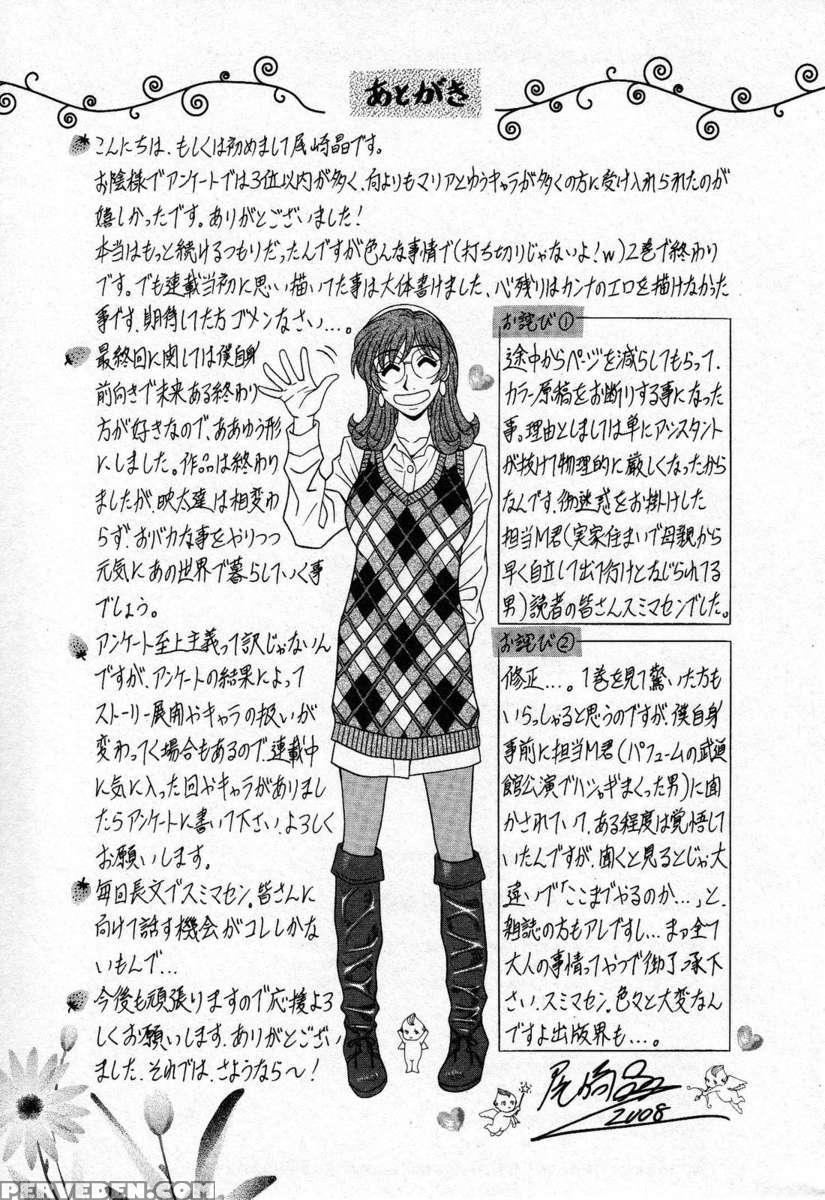 あとがき
こんにちは、もしくは初めまして尾崎晶です。
お陰様でアンケートでは3位以内が多く、何よりもマリアとゆうキャラが多くの方に受け入れられたのが
嬉しかったです。ありがとございました!
本当はもっと続けるつもりだったんですが色んな事情で(打ち切りじゃないよ!w)2巻で終わり
です。でも連載当初に思い描いてた事は大体書けました、心残りはカンナのエロを描けなかった
事です、期待してた方ゴメンなさい…。
最終回に関しては僕自身
前向きで未来ある終わり
方が好きなので、ああゆう形
にしました。作品は終わり
ましたが、映太達は相変わ
らず、おバカな事をやりつつ
元気にあの世界で暮らしていく事
でしょう。
アンケート至上主義って訳じゃないん
ですが、アンケートの結果によって
ストーリー展開やキャラの扱いが
変わってく場合もあるので、連載中
に気に入った回やキャラがありまし
たらアンケートに書いて下さい、よろしく
お願いします。
毎回長文でスミマセン。皆さんに
向けて話す機会がコレしかな
いもんで…
今後も頑張りますので応援よろ
しくお願いします、ありがとござい
ました、それでは、さようなら〜!
お詫び①
途中からページを減らしてもらって、
カラー原稿をお断りする事になった
事。理由としましては単にアシスタント
が抜けて物理的に厳しくなったから
なんです、御迷惑をお掛けした
担当M君(実家住まいで母親から
早く自立して出て行けとなじられてる
男)読者の皆さんスミマセンでした。
お詫び②
修正…。1巻を見て驚いた方も
いらっしゃると思うのですが、僕自身
事前に担当M君(パフュームの武道
館公演でハシャギまくった男)に聞
かされていて、ある程度は覚悟して
いたんですが、聞くと見るとじゃ大
違いで「ここまでやるのか…」と、
雑誌の方もアレですし…まァ全て
大人の事情ってやつで御了承下
さい、スミマセン。色々と大変なん
ですよ出版界も…。
尾崎晶
2008
PERVEDEN.COM